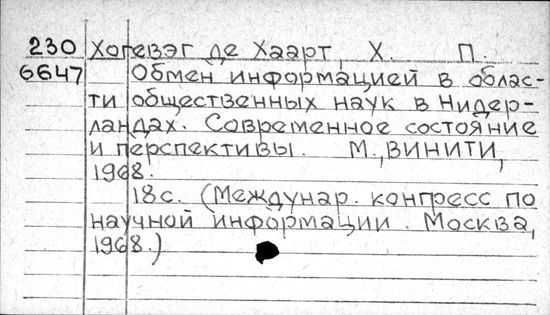 230 Хогевэг де Хаарт, Х. П.
6647 Обмен информацией в облас-
ти общественных наук в Нидер-
ландах. Современное состояние
и перспективы. М., ВИНИТИ,
1968.
18с. (Междунар. конгресс по
научной информации. Москва,
1968.)